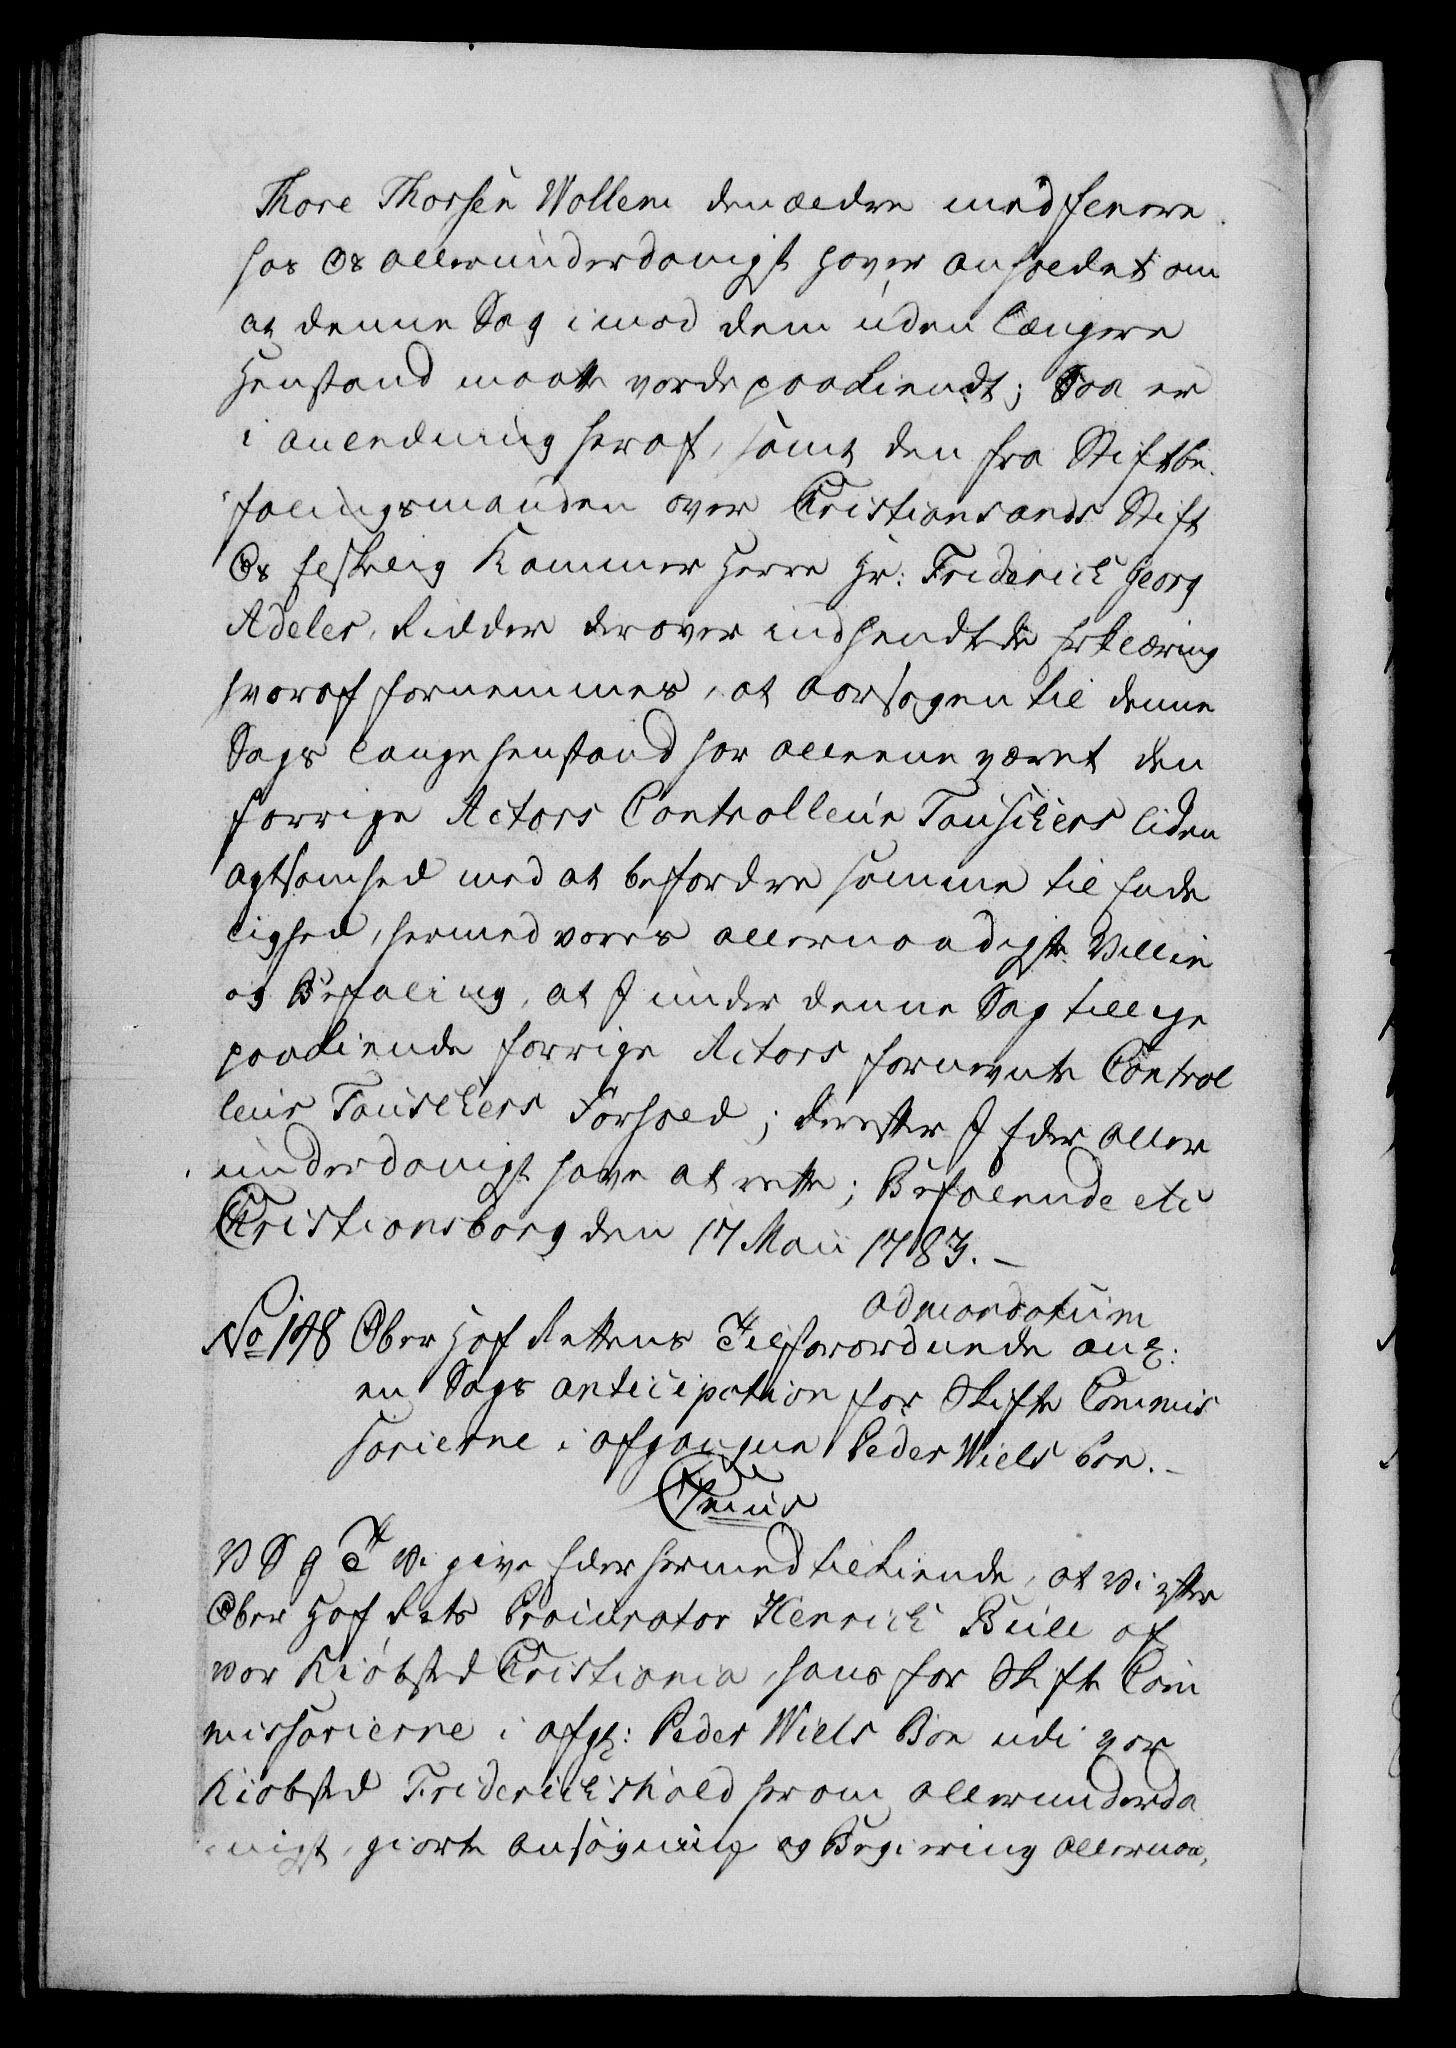 Thore Thorsen Wollem den ældre med fleere
hos Os allerunderdanigst haver ansøedet om
at denne Sag imod dem uden længere
Henstand maatte vorde paakiendt; Saa er
i anledning heraf, samt den fra Stiftbe-
falingsmanden over Christiansands Stift
Os Elskelig Kammer Herre Hr: Friderich Georg
Adeler, Ridder derover indsendte Erklæring
hvoraf fornemmes, at aarsagen til denne
Sags lange henstand har alleene været den
forrige Actors Controlleur Tauschers liden
agtsomhed med at befordre samme til Ende
lighed, hermed vores allernaadigste Villie
og Befaling, at I under denne Sag tillige
paakiende forrige Actors fornevnte Control
leur Tauschers Forhold; derefter I Eder aller
underdanigst have at rette; Befalende etc
Christiansborg den 17 Maii 1783.
ad mandatum
No 148 Ober Hof Rettens Tilforordnede ang:
en Sags anticipation for Skifte Commis
sarierne i afgangne Peder Wiels Boe.
Chr: 7mus
V S G T Vi give Eder hermed tilkiende, at Vi efter
Ober Hof Rets Procurator Henrich Bull af
vor Kiøbsted Christiania, hans for Skifte Com
missarierne i afg: Peder Wiels Boe udi vor
Kiøbsted Friderichshald herom allerunderda
nigst giorte ansøgning og Begiering allernaa,